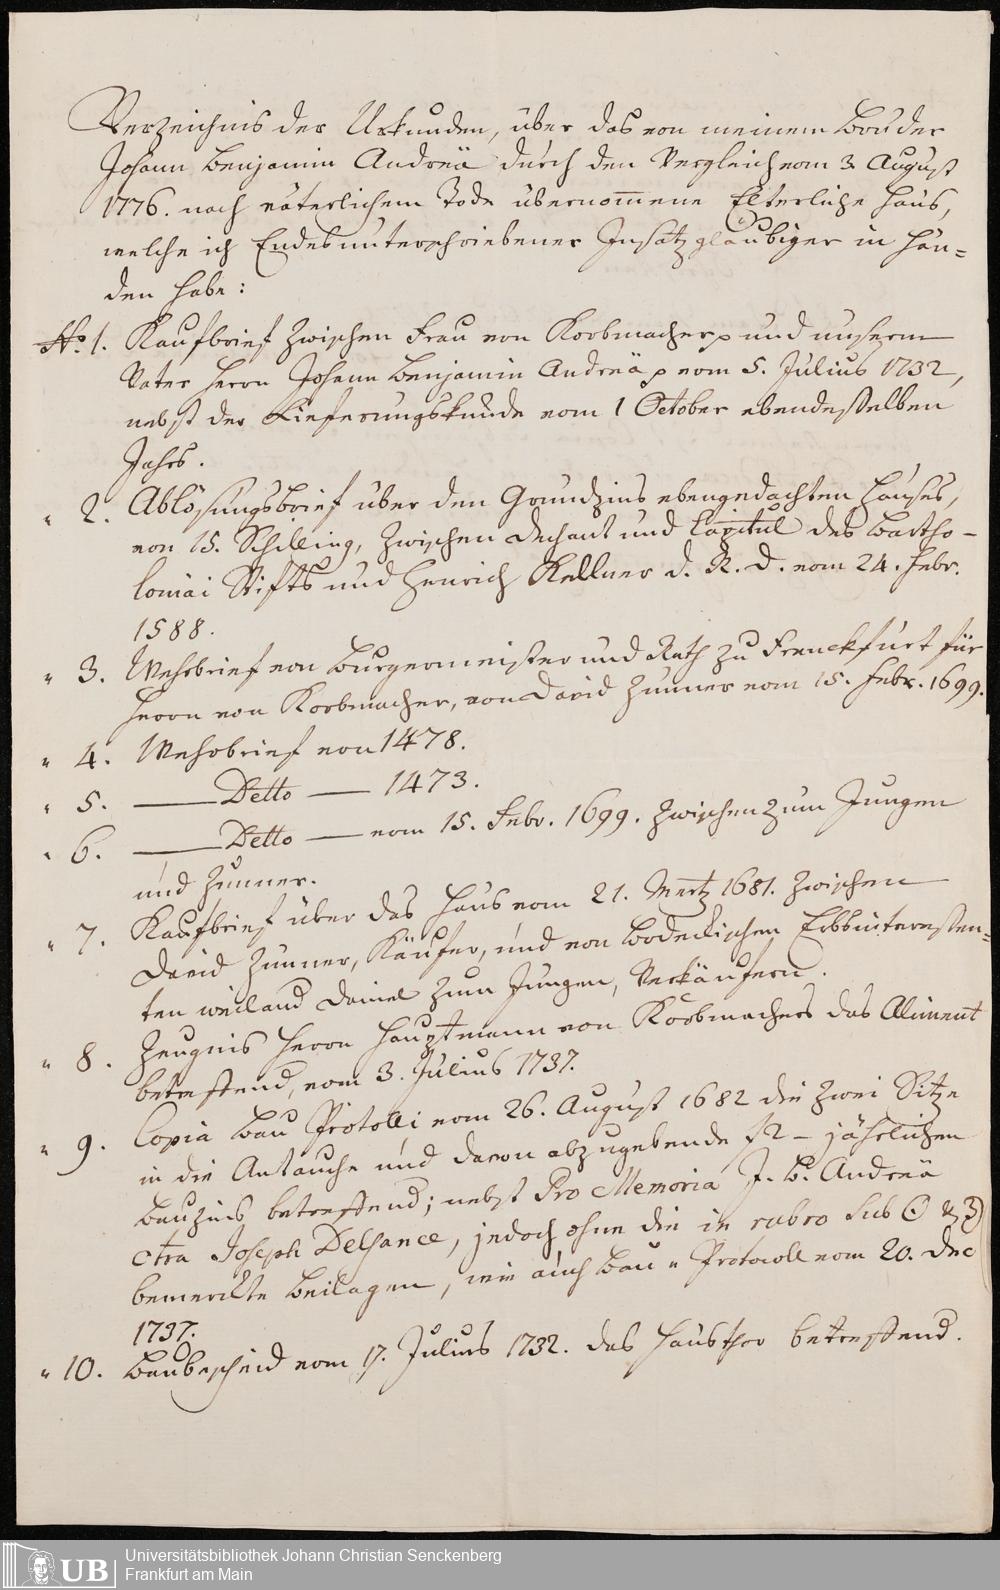 Verzeichnis der Urkunden, über das von meinem Bruder
Johann Benjamin Andreä durch den Vergleich vom 3 August
1776. nach väterlichem Tode übernom̅ene Elterliche Haus,
welche ich Endesunterschriebener Insatzglaubiger in Hän=
den habe:
No. 1. Kaufbrief zwischen Frau von Korbmacher p und unserm
Vater Herrn Johann Benjamin Andreä p vom 5. Julius 1732,
nebst der Lieferungskunde vom 1 October ebendesselben
Jahrs.
" 2. Ablösungsbrief über den Grundzins ebengedachten Hauses,
von 15. Schilling, zwischen Dechant und Capitul des Bartho-
lomäi Stifts und Henrich Kellner d. R. D. vom 24. Febr.
1588.
" 3. Wehrbrief von Burgermeister und Rath zu Franckfurt für
Herrn von Korbmacher, von David Zunner vom 15. Febr. 1699.
" 4. Wehrbrief von 1478.
" 5. — Detto — 1473.
" 6. — Detto — vom 15. Febr. 1699. zwischen zum Jungen
und Zunner.
" 7. Kaufbrief über das Haus vom 21. Mertz 1681. zwischen
David Zunner, Käufer, und von Bodeckischen Erbinteressen=
ten weiland Daniel zum Jungen, Verkäufern.
" 8. Zeugnis Herrn Hauptmann von Korbmachers das Aliment
betreffend, vom 3. Julius 1737.
" 9. Copia Bau Protolli vom 26. August 1682 die zwei Sitze
in die Antauche und davon abzugebende f2 - jährlichen
Bauzins betreffend; nebst Pro Memoria J. B. Andreä
ctra Joseph Delsance, jedoch ohne die in rubro sub ☉ & ☽
bemerckte Beilagen, wie auch Bau " Protocoll vom 20. Dec
1737.
" 10. Baubescheid vom 17. Julius 1732. das Hausthor betreffend.
UB
Universitätsbibliothek Johann Christian Senckenberg
Frankfurt am Main